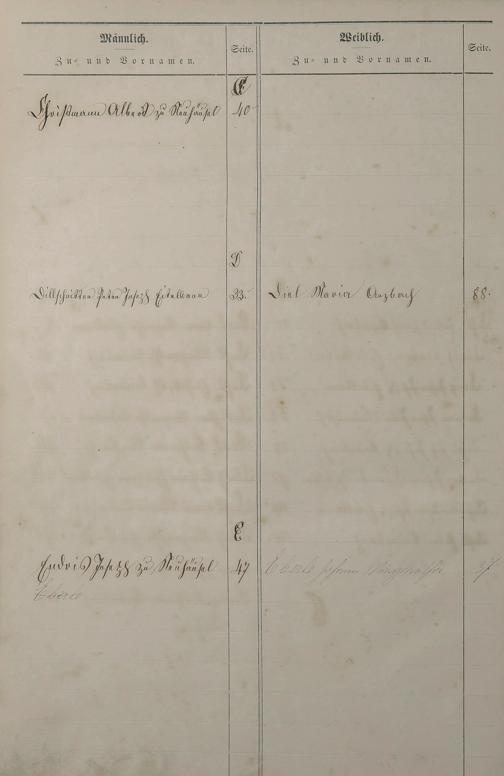 Männlich.
Zu- und Vornamen.
Seite.
Weiblich.
Zu- und Vornamen.
Seite.
C
Chrißmann Albert zu Neuhäusel 40
D
Dillschnitter Peter Joseph Eitelborn 33.
Diel Maria Arzbach 88.
E
Endris Joseph zu Neuhäusel 47
Eberle Johann 37
Eberle